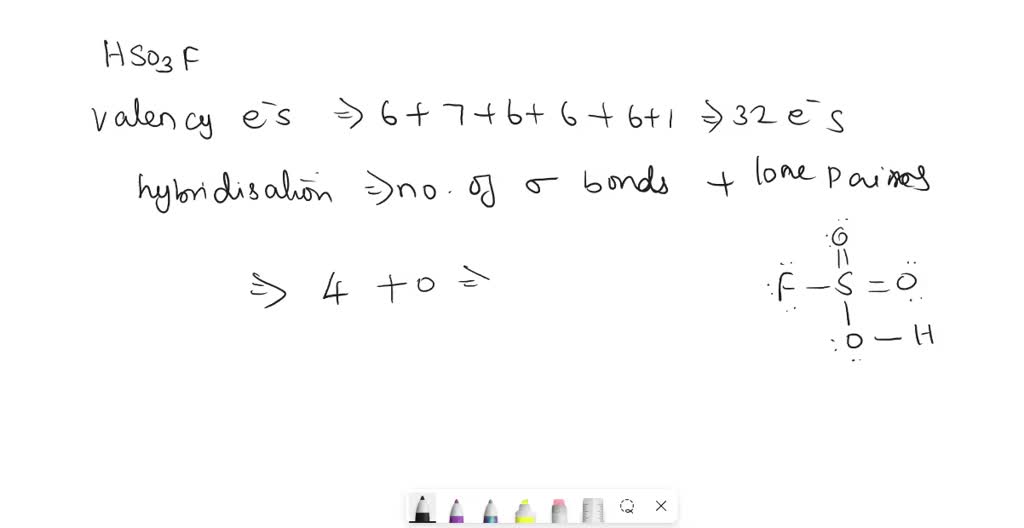 HSO₃F
valency e⁻s ⇒ 6 + 7 + 6 + 6 + 6+1 ⇒ 32 e⁻s
hybridisation ⇒ no. of σ bonds + lone pairs
⇒ 4 + 0 ⇒
:Ö
||
:F̈ – S = Ö
|
:O – H